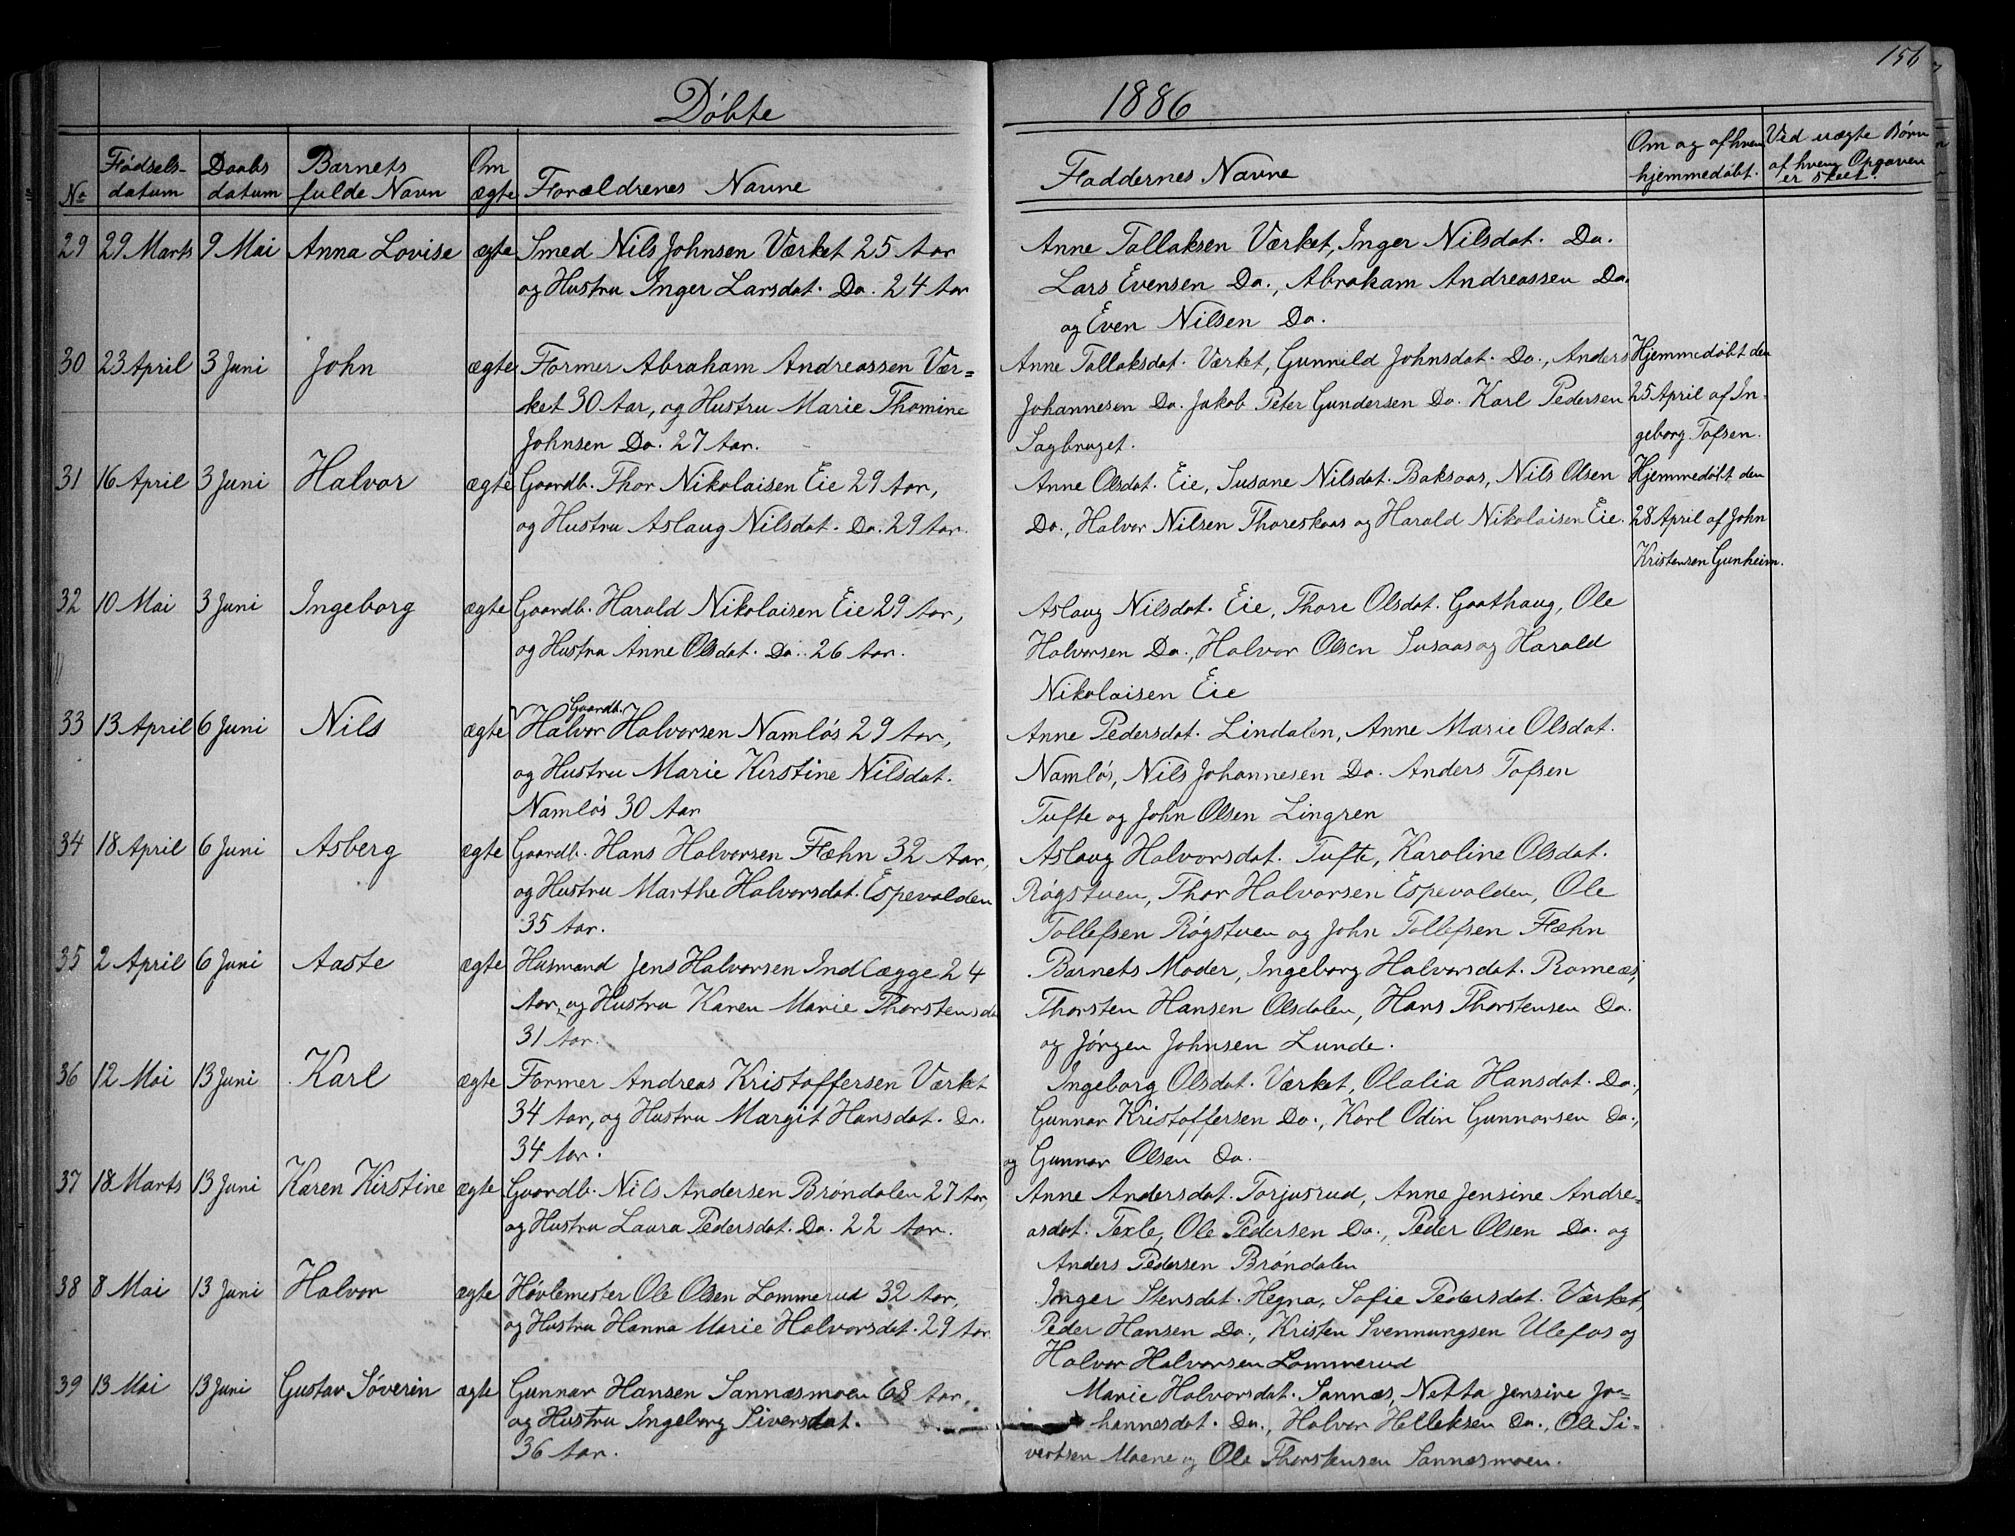 156
Døbte 1886
№ Fødsels- datum Daabs datum Barnets fulde Navn Om ægte Forældrenes Navne Faddernes Navne Om og af hvem hjemmedøbt. Ved uægte Børn af hvem Opgaven er skeet.
29 29 Marts 9 Mai Anna Lovise ægte Smed Nils Johnsen Værket 25 Aar Anne Tallaksen Værket, Inger Nilsdat. Do.
og Hustru Inger Larsdat. Do. 24 Aar Lars Evensen Do., Abraham Andreassen Do.
og Even Nilsen Do.
30 23 April 3 Juni John ægte Former Abraham Andreassen Vær= Anne Tallaksdat. Værket, Gunnild Johnsdat. Do., Anders Hjemmedøbt den
ket 30 Aar, og Hustru Marie Thomine Johannesen Do. Jakob Peter Gundersen Do. Karl Pedersen 25 April af In-
Johnsen Do. 27 Aar. Sagbruget. geborg Tofsen.
31 16 April 3 Juni Halvor ægte Gaardb. Thor Nikolaisen Eie 29 Aar, Anne Olsdat. Eie, Susane Nilsdat. Baksaas, Nils Olsen Hjemmedøbt den
og Hustru Aslaug Nilsdat. Do. 29 Aar. Do., Halvor Nilsen Thoreskaas og Harald Nikolaisen Eie. 28 April af John
Kristensen Gunheim.
32 10 Mai 3 Juni Ingeborg ægte Gaardb. Harald Nikolaisen Eie 29 Aar, Aslaug Nilsdat. Eie, Thore Olsdat. Gaathaug, Ole
og Hustru Anne Olsdat. Do. 26 Aar. Halvorsen Do., Halvor Olsen Susaas og Harald
Nikolaisen Eie
Gaardb.
33 13 April 6 Juni Nils ægte Halvor Halvorsen Namløs 29 Aar, Anne Pedersdat. Lindalen, Anne Marie Olsdat.
og Hustru Marie Kirstine Nilsdat. Namløs, Nils Johannesen Do. Anders Tofsen
Namløs 30 Aar Tufte og John Olsen Lingren
34 18 April 6 Juni Asberg ægte Gaardb. Hans Halvorsen Flæhn 32 Aar, Aslaug Halvorsdat. Tufte, Karoline Olsdat.
og Hustru Marthe Halvorsdat. Espevalden Røgstuen, Thor Halvorsen Espevalden, Ole
35 Aar. Tollefsen Røgstuen og John Tollefsen Flæhn
35 2 April 6 Juni Aaste ægte Husmand Jens Halvorsen Indlægge 24 Barnets Moder, Ingeborg Halvorsdat. Romæs,
Aar, og Hustru Karen Marie Thorstensd Thorsten Hansen Olsdalen, Hans Thorstensen Do.
31 Aar. og Jørgen Johnsen Lunde.
36 12 Mai 13 Juni Karl ægte Former Andreas Kristoffersen Værket Ingeborg Olsdat. Værket, Olalia Hansdat. Do.,
34 Aar, og Hustru Margit Hansdat. Do. Gunnar Kristoffersen Do., Karl Odin Gunnarsen Do.,
34 Aar. og Gunnar Olsen Do.
37 18 Marts 13 Juni Karen Kirstine ægte Gaardb. Nils Andersen Brøndalen 27 Aar, Anne Andersdat. Torjusrud, Anne Jensine Andre=
og Hustru Laura Pedersdat. Do. 22 Aar. asdat. Texle, Ole Pedersen Do., Peder Olsen Do. og
Anders Pedersen Brøndalen
38 8 Mai 13 Juni Halvor ægte Høvlemester Ole Olsen Lommerud 32 Aar, Inger Stensdat. Hegna, Sofie Pedersdat. Værket,
og Hustru Hanna Marie Halvorsdat. 29 Aar. Peder Hansen Do., Kristen Svennungsen Ulefos og
Halvor Halvorsen Lommerud
39 13 Mai 13 Juni Gustav Søverin ægte Gunnar Hansen Sannæsmoen 68 Aar, Marie Halvorsdat. Sannæs, Netta Jensine Jo=
og Hustru Ingeborg Siversdat. hannesdat. Do., Halvor Helleksen Do., Ole Si-
36 Aar. vertsen Moene og Ole Thorstensen Sannæsmoen.